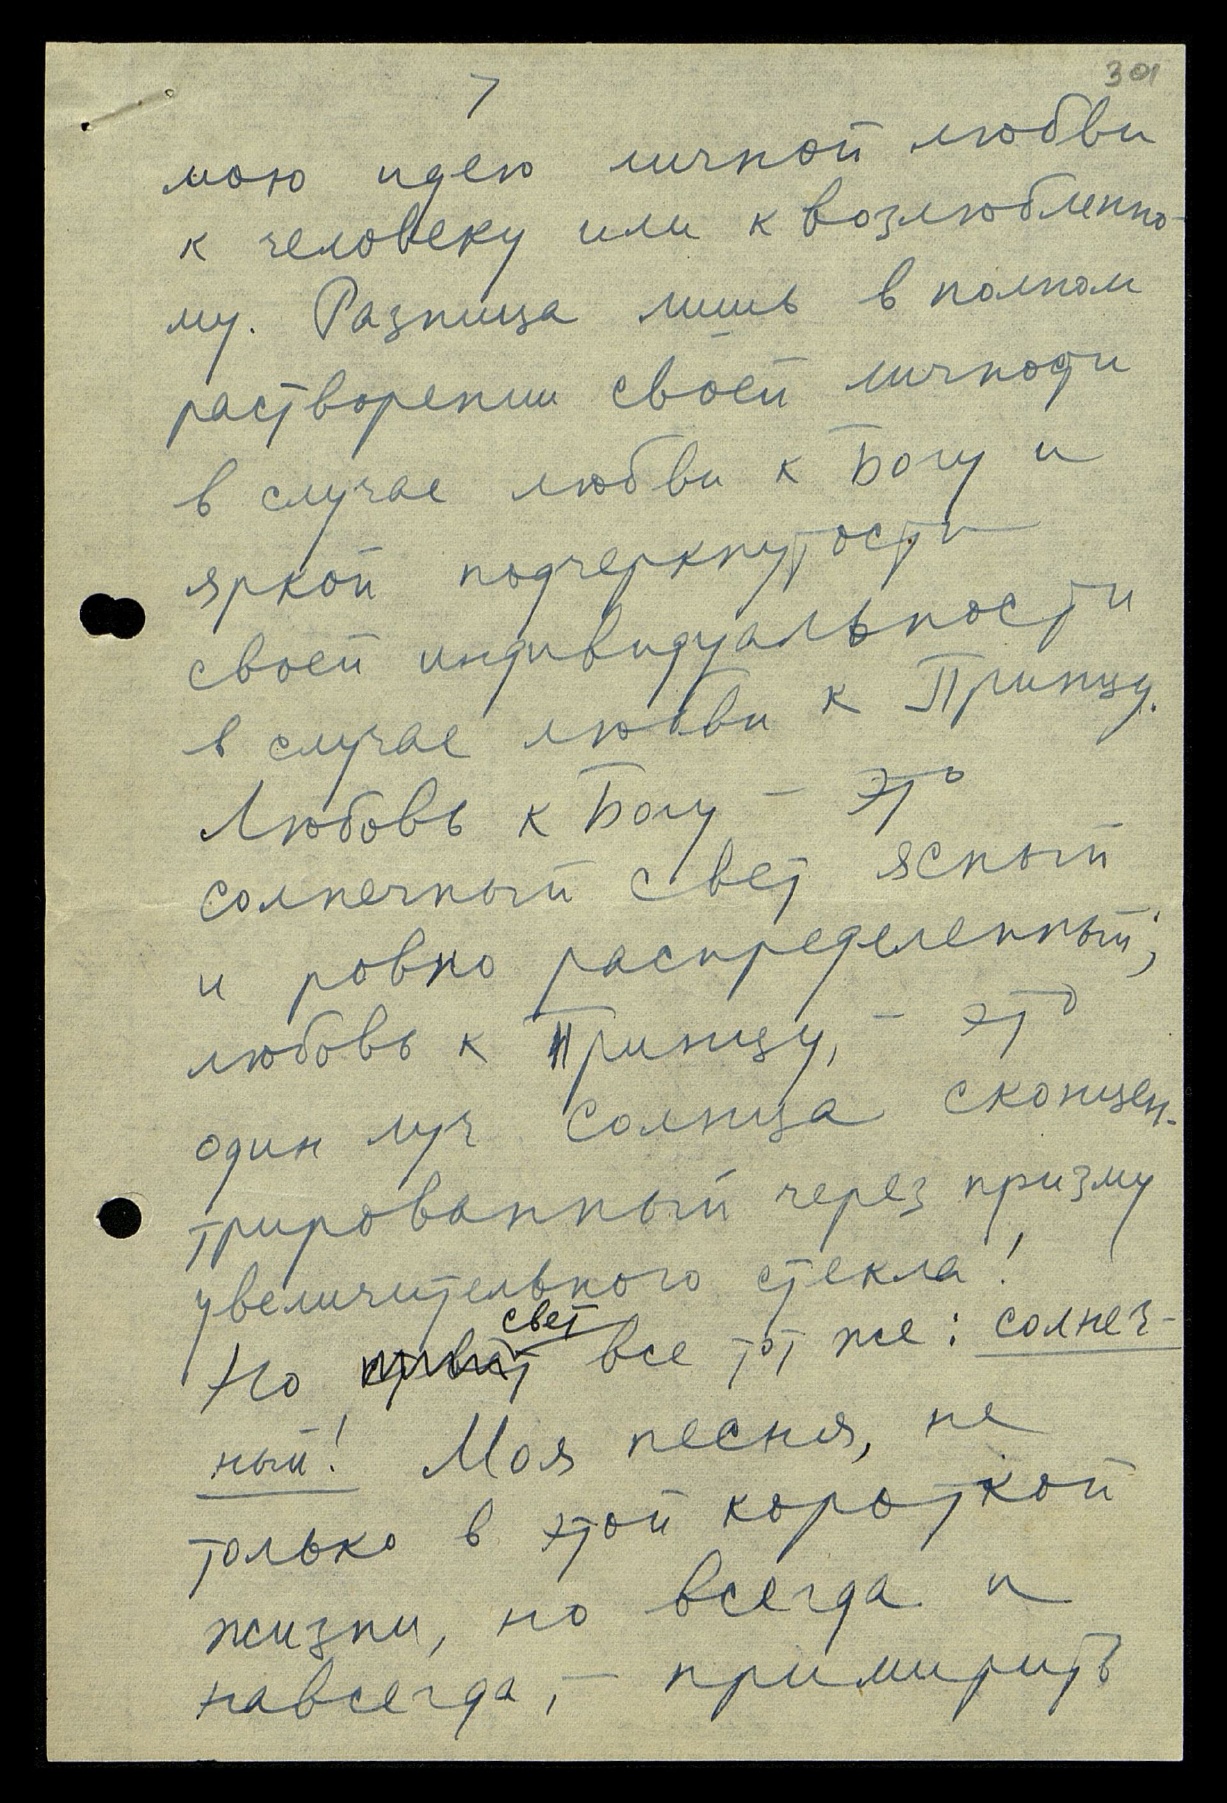 301
7
мою идею личной любви
к человеку или к возлюбленно-
му. Разница лишь в полном
растворении своей личности
в случае любви к Богу и
яркой подчеркнутости
своей индивидуальности
в случае любви к Принцу.
Любовь к Богу – это
солнечный свет ясный
и ровно распределенный;
любовь к Принцу, – это
один луч солнца сконцен-
трированный через призму
увеличительного стекла!
свет
Но все тот же: солнеч-
ный! Моя песня, не
только в этой короткой
жизни, но всегда и
навсегда, – примирить